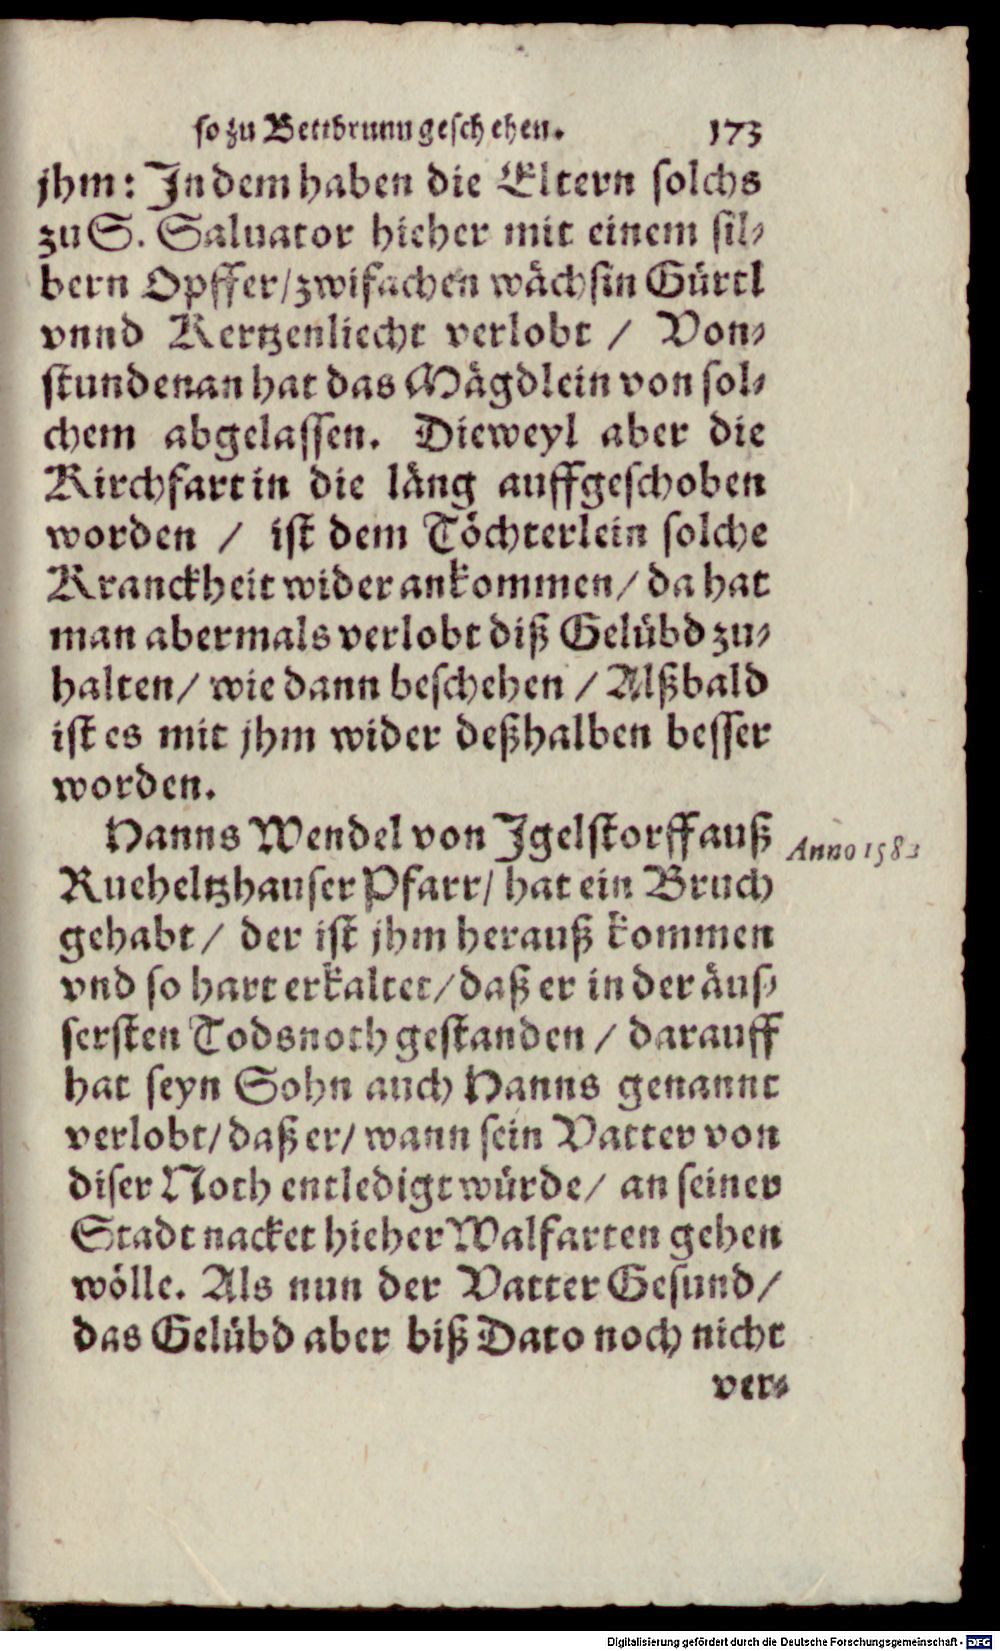 so zu Bettbrunn geschehen. 173
jhm: Jn dem haben die Eltern solchs
zu S. Saluator hieher mit einem sil⸗
bern Opffer/ zwifachen wächsin Gürtl
vnnd Kertzenliecht verlobt / Von⸗
stundenan hat das Mägdlein von sol⸗
chem abgelassen. Dieweyl aber die
Kirchfart in die läng auffgeschoben
worden / ist dem Töchterlein solche
Kranckheit wider ankommen/ da hat
man abermals verlobt diß Gelübd zu⸗
halten/ wie dann beschehen / Alßbald
ist es mit jhm wider deßhalben besser
worden.
Hanns Wendel von Jgelstorff auß
Anno 1583
Rueheltzhauser Pfarr/ hat ein Bruch
gehabt/ der ist jhm herauß kommen
vnd so hart erkaltet/ daß er in der äus⸗
sersten Todsnoth gestanden / darauff
hat seyn Sohn auch Hanns genannt
verlobt/ daß er/ wann sein Vatter von
diser Noth entledigt würde/ an seiner
Stadt nacket hieher Walfarten gehen
wölle. Als nun der Vatter Gesund/
das Gelübd aber biß Dato noch nicht
ver⸗
Digitalisierung gefördert durch die Deutsche Forschungsgemeinschaft - DFG